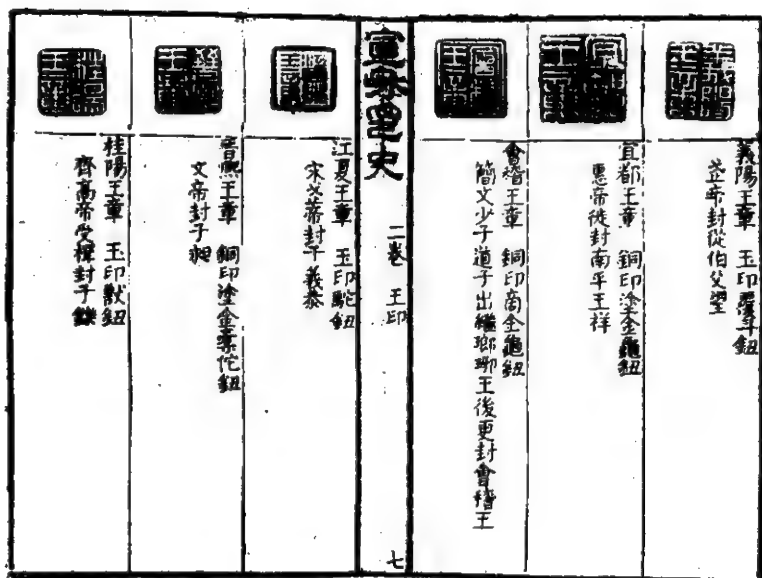 義陽王章　玉印覆斗鈕
武帝封從伯父望
宜都王章　銅印塗金龜鈕
惠帝徙封南平王祥
會稽王章　銅印商金龜鈕
簡文少子道子出繼瑯琊王後更封會稽王
宣和印史　二卷　王印　七
江夏王章　玉印駝鈕
宋武帝封子義恭
晉熙王章　銅印塗金橐佗鈕
文帝封子昶
桂陽王章　玉印獸鈕
齊高帝受禪封子鑠